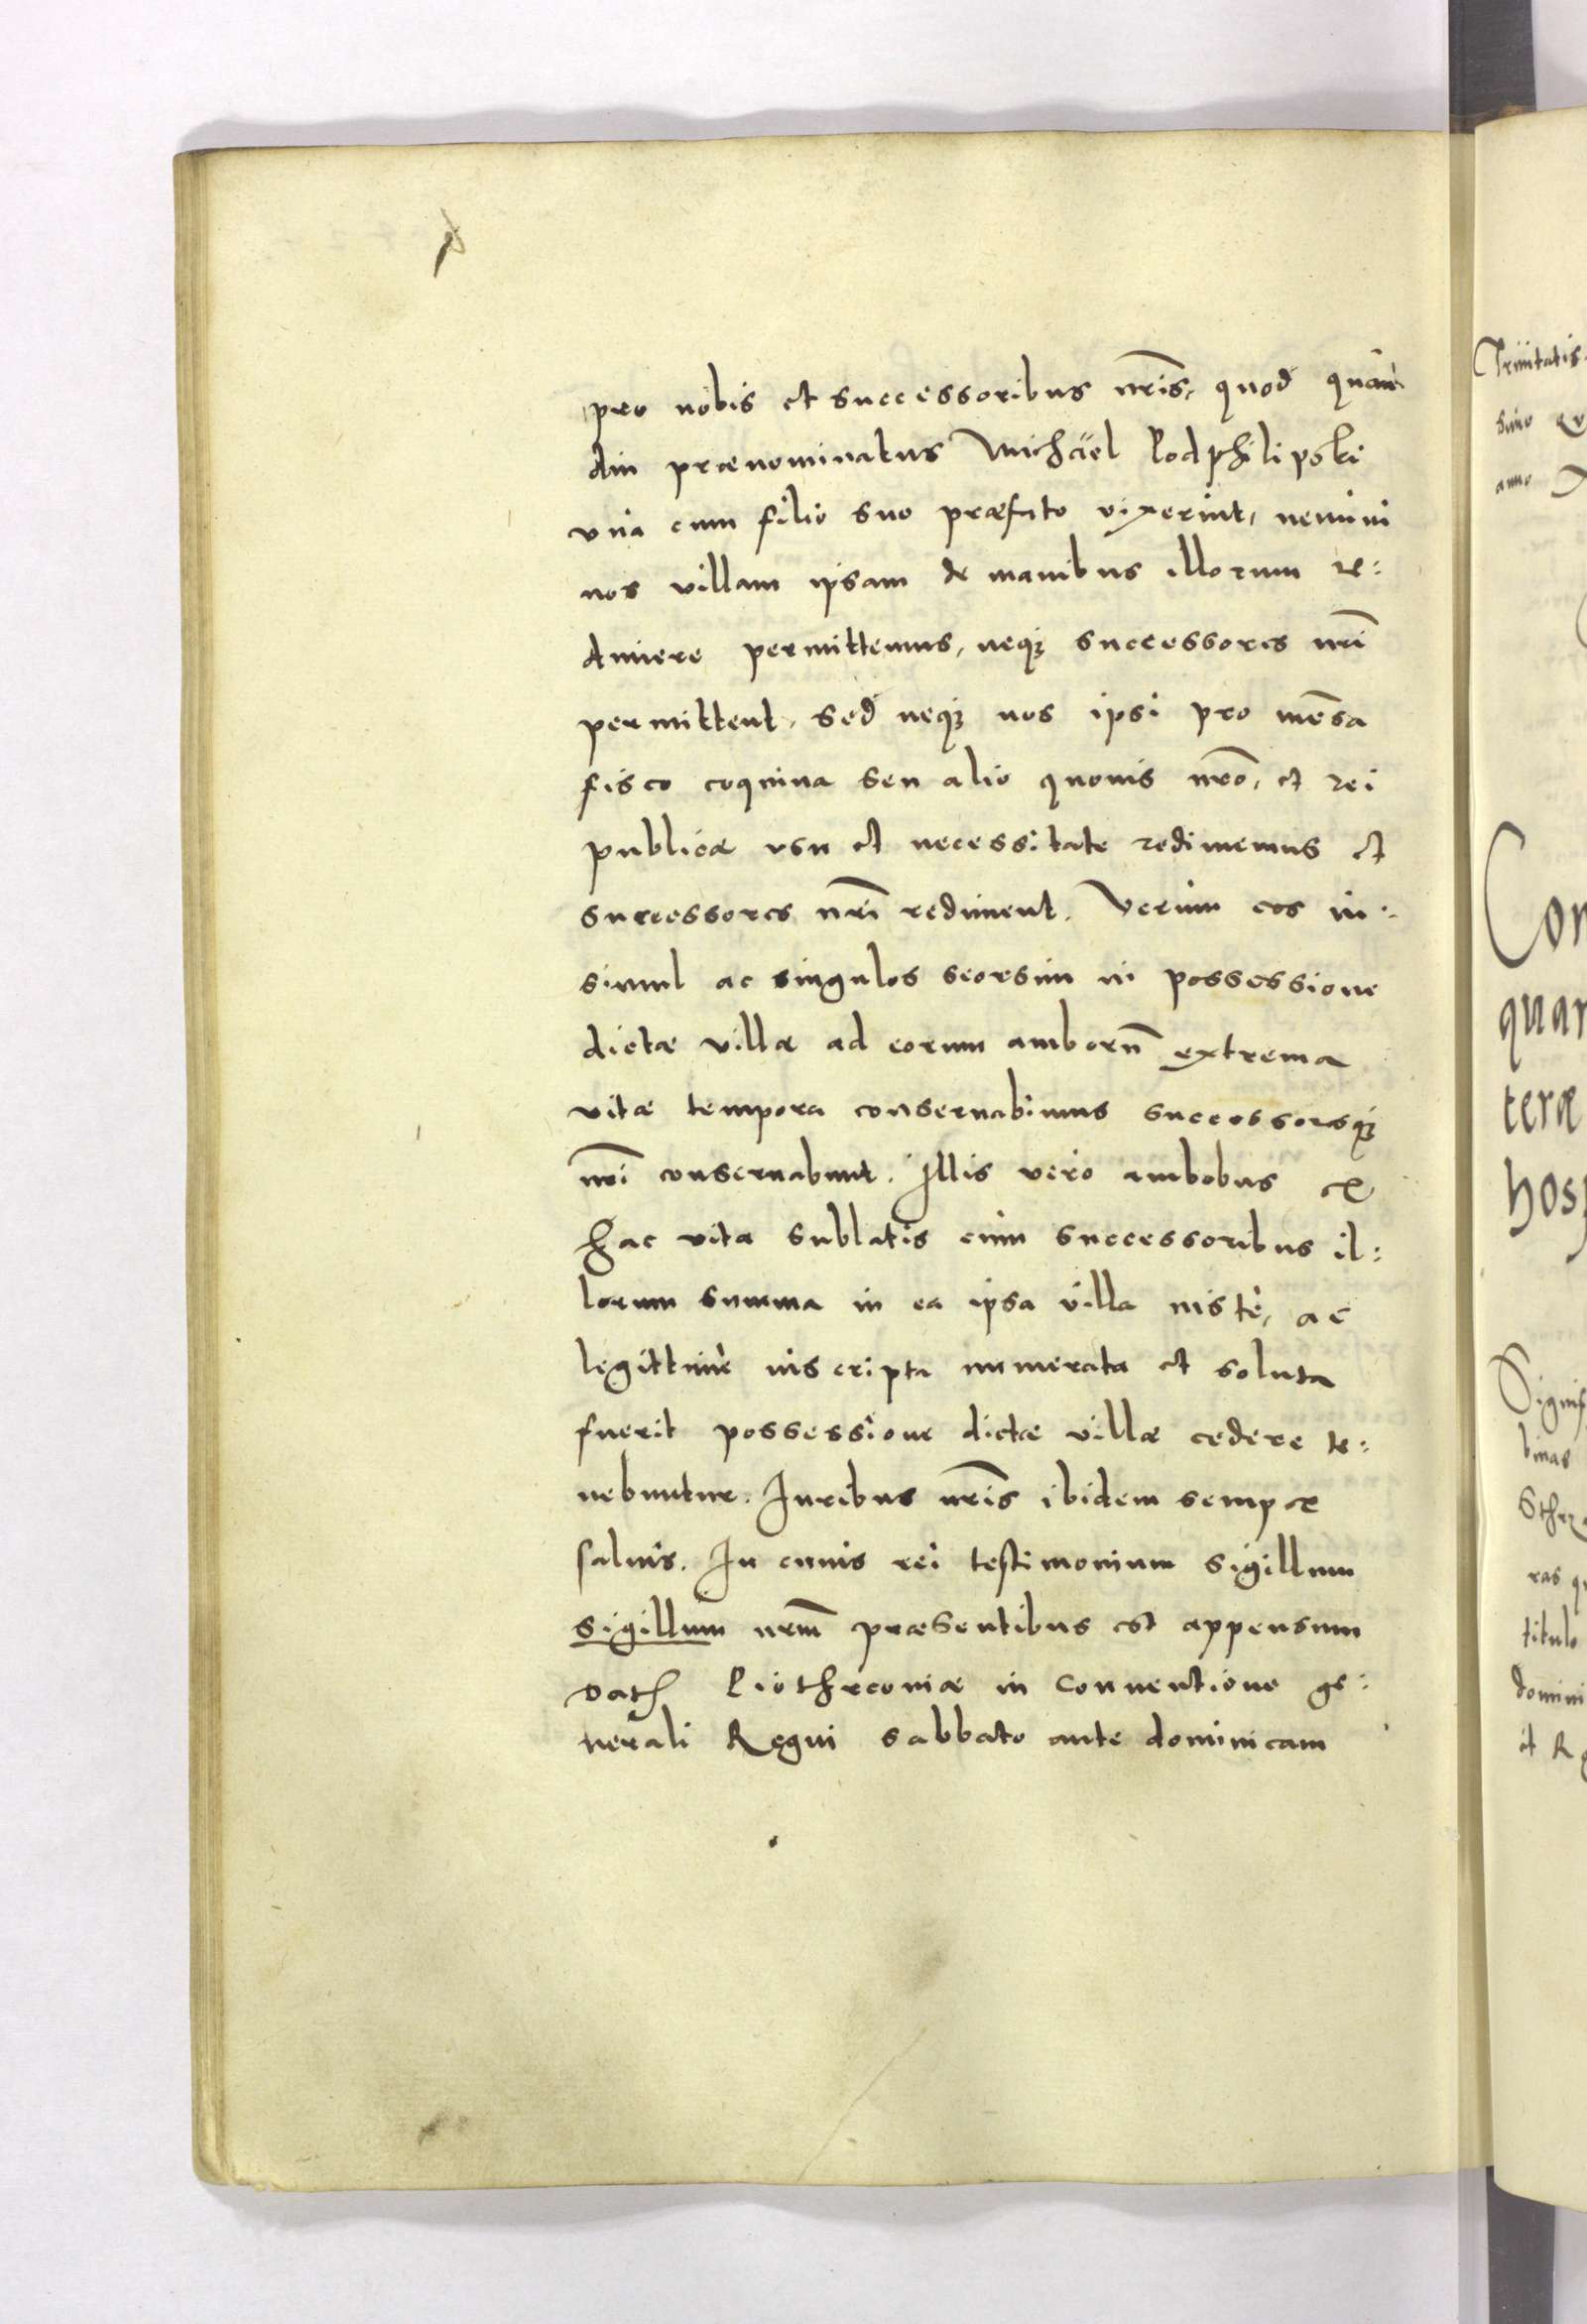 pro nobis et successoribus nr̃is, quod quàm
diu prænominatus Michäel Podphilipski
vna cum filio suo præfato vixerint, nemini
nos villam ipsam de manibus illorum re:
dimere permittemus, neqꝫ successores nr̃i
permittent. Sed neqꝫ nos ipsi pro mẽsa
fisco coquina seu alio quouis nr̃o, et rei
publicæ vsu et necessitate redimemus et
successores nr̃i rediment. Verùm eos in:
simul ac singulos seorsim in possessione
dictæ villæ ad eorum amborũ extrema
vitæ tempora conseruabimus successoresqꝫ
nr̃i conseruabunt. Illis vero ambobus ex
hac vita sublatis cùm successoribus il:
lorum summa in ea ipsa villa iustè, ac
legittimè inscripta numerata et soluta
fuerit possessione dictæ villæ cedere te:
nebuntur. Iuribus nr̃is ibidem semper
saluis. In cuius rei testimonium sigillum
sigillum nr̃m præsentibus est appensum
Dat Piothrcouiæ in Conuentione ge:
nerali Regni sabbato ante dominicam
Trinitatis
anno
Con
quar
teræ
hosp
Signif
binas
ras qu
titulo
domini
et R